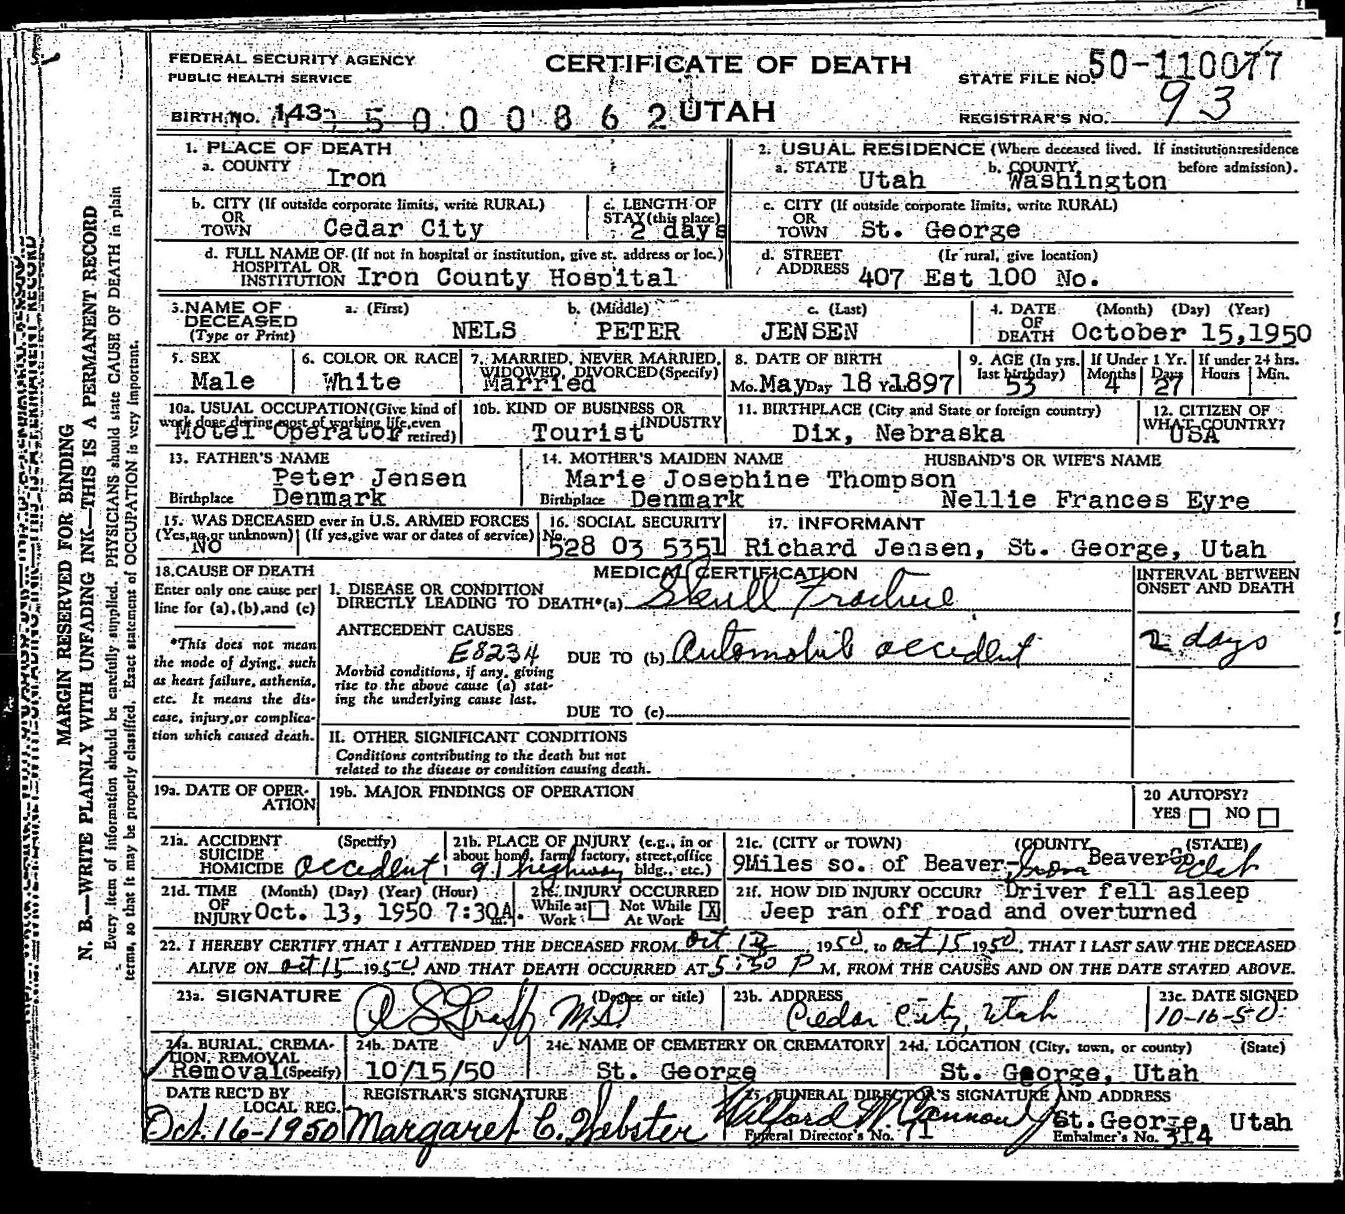 FEDERAL SECURITY AGENCY
PUBLIC HEALTH SERVICE
CERTIFICATE OF DEATH
STATE FILE NO. 50-110077
BIRTH NO. 143 5000862 UTAH
REGISTRAR'S NO. 93
1. PLACE OF DEATH
a. COUNTY Iron
2. USUAL RESIDENCE (Where deceased lived. If institution:residence before admission).
a. STATE Utah b. COUNTY Washington
b. CITY (If outside corporate limits, write RURAL) OR TOWN Cedar City
c. LENGTH OF STAY (this place) 2 days
c. CITY (If outside corporate limits, write RURAL) OR TOWN St. George
d. FULL NAME OF (If not in hospital or institution, give st. address or loc.) HOSPITAL OR INSTITUTION Iron County Hospital
d. STREET ADDRESS (If rural, give location) 407 Est 100 No.
3. NAME OF DECEASED (Type or Print) a. (First) NELS b. (Middle) PETER c. (Last) JENSEN
4. DATE OF DEATH (Month) (Day) (Year) October 15,1950
5. SEX Male
6. COLOR OR RACE White
7. MARRIED, NEVER MARRIED, WIDOWED, DIVORCED (Specify) Married
8. DATE OF BIRTH Mo. May Day 18 Yr. 1897
9. AGE (In yrs. last birthday) 53 If Under 1 Yr. Months 4 Days 27 If under 24 hrs. Hours Min.
10a. USUAL OCCUPATION (Give kind of work done during most of working life, even retired) Motel Operator
10b. KIND OF BUSINESS OR INDUSTRY Tourist
11. BIRTHPLACE (City and State or foreign country) Dix, Nebraska
12. CITIZEN OF WHAT COUNTRY? USA
13. FATHER'S NAME Peter Jensen
Birthplace Denmark
14. MOTHER'S MAIDEN NAME Marie Josephine Thompson
Birthplace Denmark
HUSBAND'S OR WIFE'S NAME Nellie Frances Eyre
15. WAS DECEASED ever in U.S. ARMED FORCES (Yes, no, or unknown) (If yes, give war or dates of service) No
16. SOCIAL SECURITY No. 528 03 5351
17. INFORMANT Richard Jensen, St. George, Utah
18. CAUSE OF DEATH
Enter only one cause per line for (a), (b), and (c)
*This does not mean the mode of dying, such as heart failure, asthenia, etc. It means the disease, injury, or complication which caused death.
MEDICAL CERTIFICATION
INTERVAL BETWEEN ONSET AND DEATH
I. DISEASE OR CONDITION DIRECTLY LEADING TO DEATH*(a) Skull Fracture
ANTECEDENT CAUSES E8234
Morbid conditions, if any, giving rise to the above cause (a) stating the underlying cause last.
DUE TO (b) Automobile accident 2 days
DUE TO (c)
II. OTHER SIGNIFICANT CONDITIONS
Conditions contributing to the death but not related to the disease or condition causing death.
19a. DATE OF OPERATION
19b. MAJOR FINDINGS OF OPERATION
20 AUTOPSY? YES NO
21a. ACCIDENT SUICIDE HOMICIDE (Specify) accident
21b. PLACE OF INJURY (e.g., in or about home, farm, factory, street, office bldg., etc.) 91 highway
21c. (CITY or TOWN) (COUNTY) (STATE) 9Miles so. of Beaver- Iron Beaver Co. Utah
21d. TIME OF INJURY (Month) (Day) (Year) (Hour) Oct. 13, 1950 7:30A. m.
21e. INJURY OCCURRED While at Work Not While At Work X
21f. HOW DID INJURY OCCUR? Driver fell asleep
Jeep ran off road and overturned
22. I HEREBY CERTIFY THAT I ATTENDED THE DECEASED FROM Oct 13, 1950, to Oct 15 1950, THAT I LAST SAW THE DECEASED
ALIVE ON Oct 15 1950 AND THAT DEATH OCCURRED AT 5:30 P M, FROM THE CAUSES AND ON THE DATE STATED ABOVE.
23a. SIGNATURE (Degree or title) M.D.
23b. ADDRESS Cedar City, Utah
23c. DATE SIGNED 10-16-50
24a. BURIAL, CREMATION, REMOVAL (Specify) Removal
24b. DATE 10/15/50
24c. NAME OF CEMETERY OR CREMATORY St. George
24d. LOCATION (City, town, or county) (State) St. George, Utah
DATE REC'D BY LOCAL REG. Oct. 16-1950
REGISTRAR'S SIGNATURE Margaret C. Webster
25. FUNERAL DIRECTOR'S SIGNATURE AND ADDRESS St. George, Utah
Funeral Director's No. 71 Embalmer's No. 314
MARGIN RESERVED FOR BINDING
N. B.—WRITE PLAINLY WITH UNFADING INK—THIS IS A PERMANENT RECORD
Every item of information should be carefully supplied. PHYSICIANS should state CAUSE OF DEATH in plain
terms, so that it may be properly classified. Exact statement of OCCUPATION is very important.